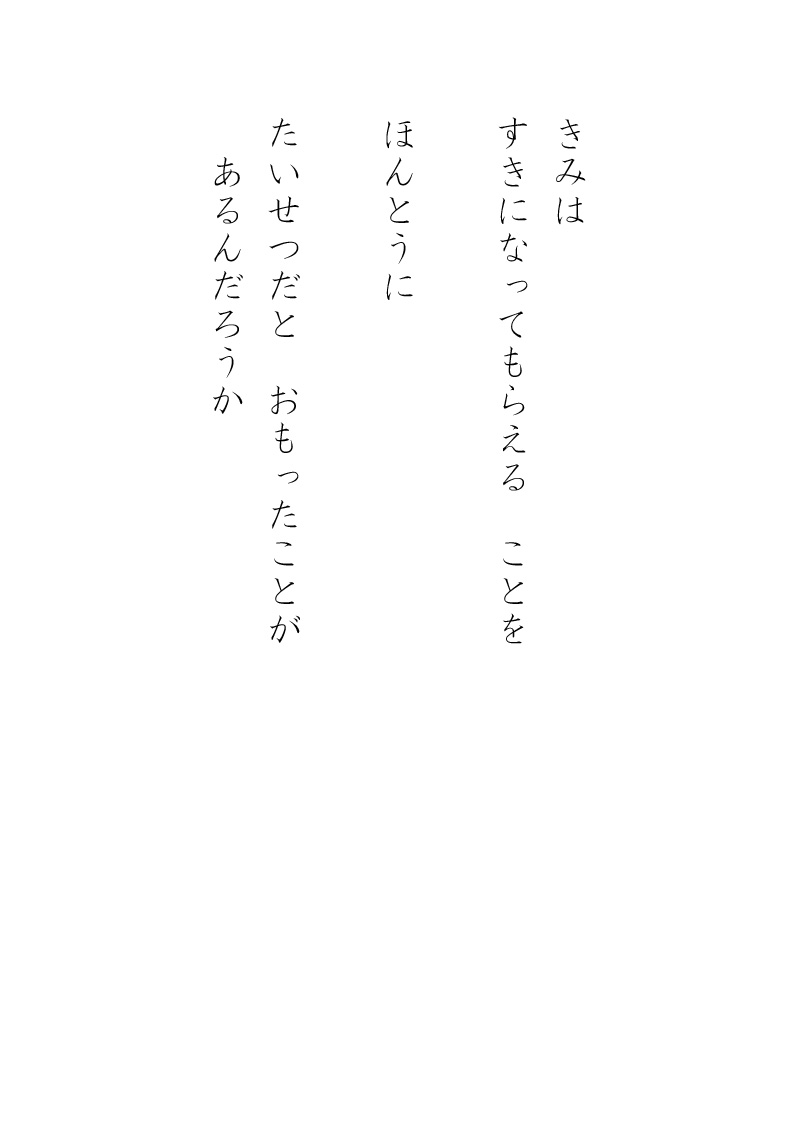 きみは
すきになってもらえる　ことを
ほんとうに
たいせつだと　おもったことが
あるんだろうか